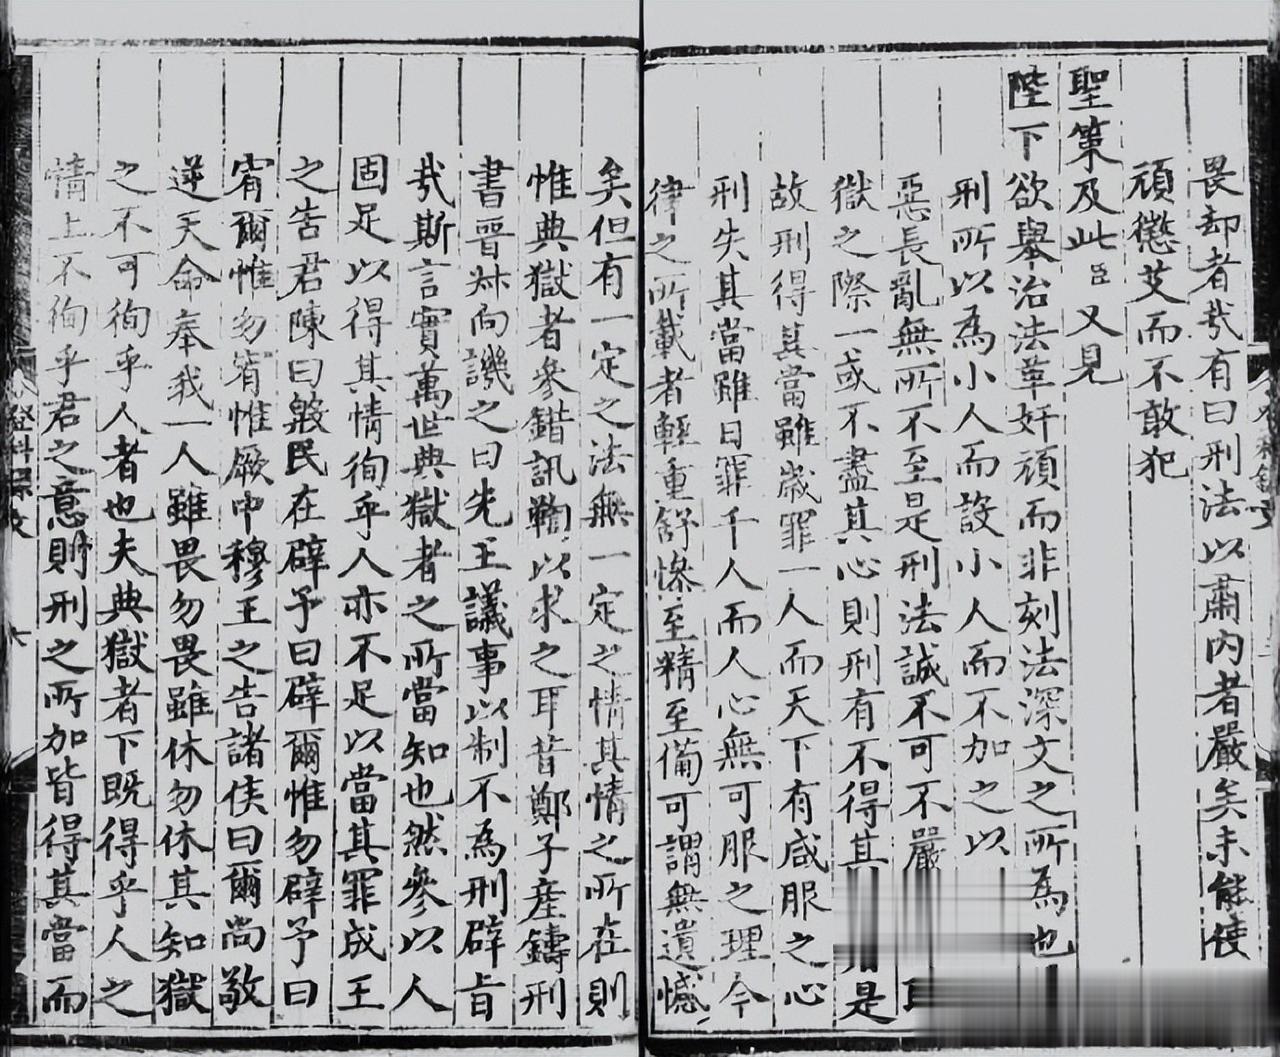 畏却者㢤有曰刑法以肅内者嚴矣未能使
頑懲艾而不敢犯
聖策及此臣又見
陛下欲舉治法革奸頑而非刻法深文之所為也
刑所以為小人而設小人而不加之以
惡長亂無所不至是刑法誠不可不嚴
獄之際一或不盡其心則刑有不得其是
故刑得其當雖歲罪一人而天下有咸服之心
刑失其當雖日罪千人而人心無可服之理今
律之所載者輕重舒慘至精至備可謂無遺憾
矣但有一定之法無一定之情其情之所在則
惟典獄者參錯訊鞫以求之耳昔鄭子產鑄刑
書晉叔向譏之曰先王議事以制不為刑辟旨
㢤斯言實萬世典獄者之所當知也然參以人
固足以得其情徇乎人亦不足以當其罪成王
之告君陳曰殷民在辟予曰辟爾惟勿辟予曰
宥爾惟勿宥惟厥中穆王之告諸侯曰爾尚敬
逆天命奉我一人雖畏勿畏雖休勿休其知獄
之不可徇乎人者也夫典獄者下既得乎人之
情上不徇乎君之意則刑之所加皆得其當而
登科錄文